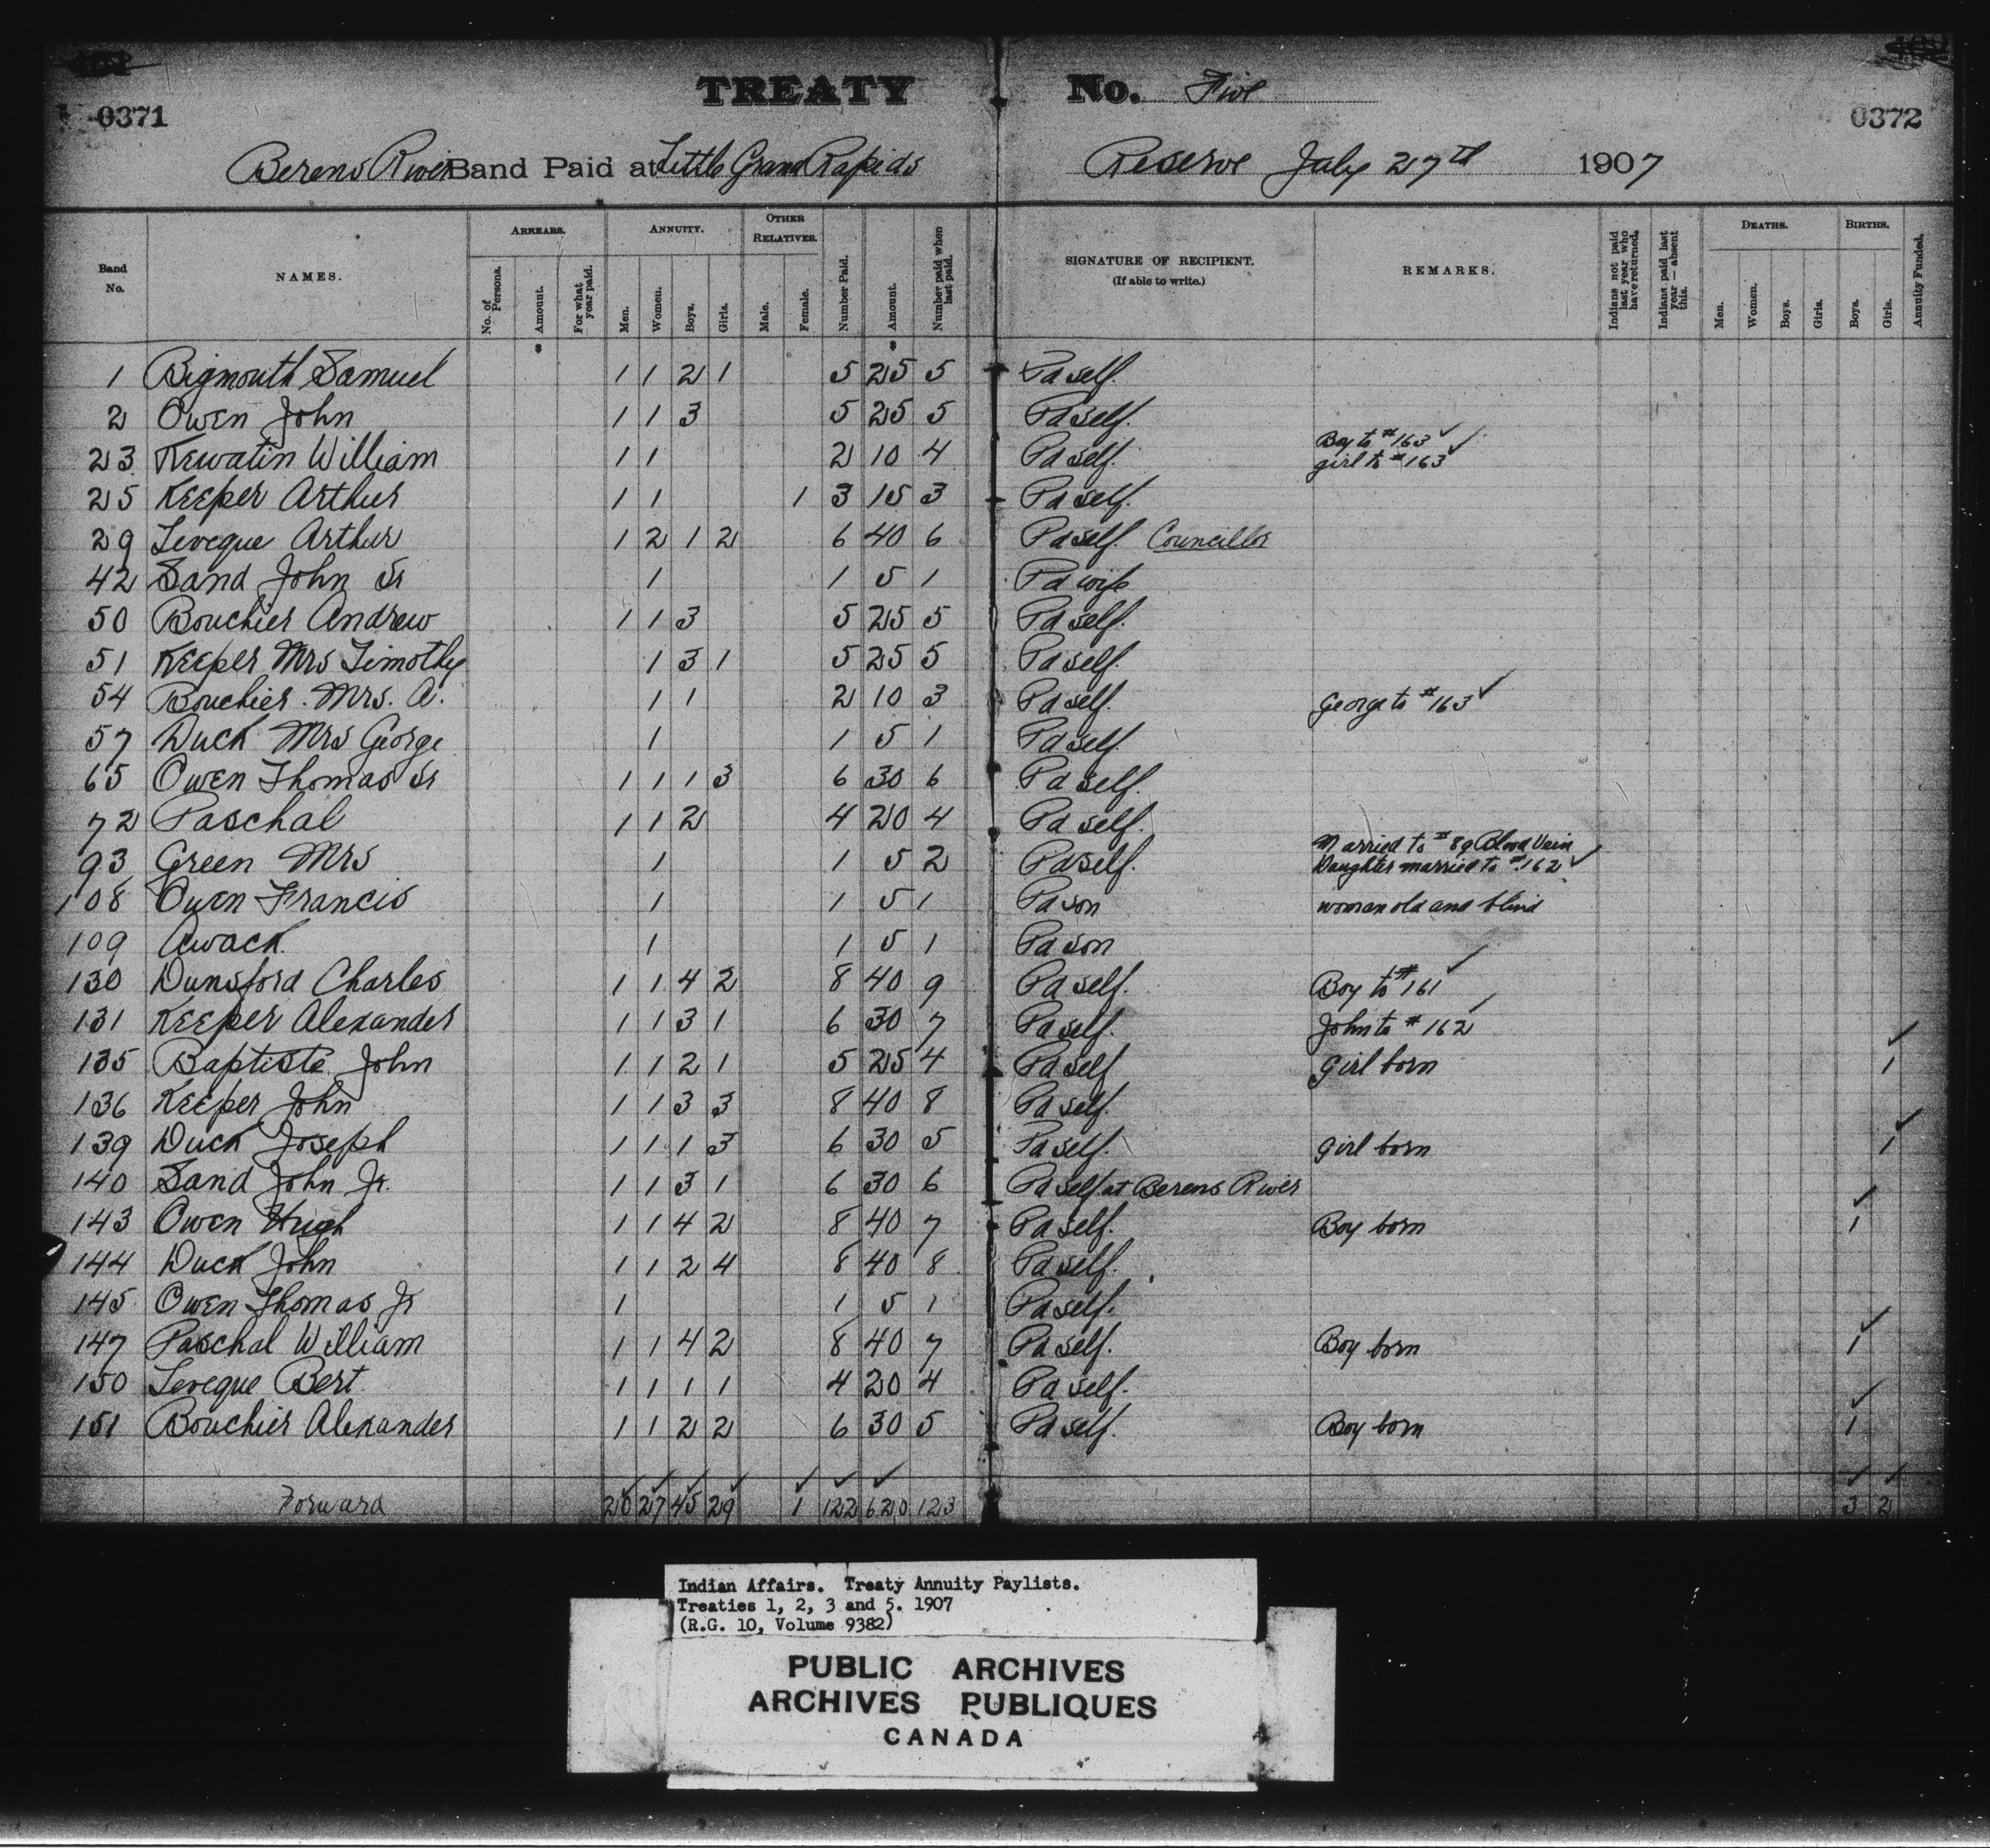 TREATY No. Five
0371 0372
Berens River Band Paid at Little Grand Rapids Reserve July 27th 1907
ARREARS. ANNUITY. OTHER RELATIVES. DEATHS. BIRTHS.
Band No. NAMES. No. of Persons. Amount. For what year paid. Men. Women. Boys. Girls. Male. Female. Number Paid. Amount. Number paid when last paid. SIGNATURE OF RECIPIENT. (If able to write.) REMARKS. Indians not paid last year who have returned. Indians paid last year — absent this. Men. Women. Boys. Girls. Boys. Girls. Annuity Funded.
$ $
1 Bigmouth Samuel 1 1 2 1 5 25 5 Pd self.
2 Owen John 1 1 3 5 25 5 Pd self.
23 Kewatin William 1 1 2 10 4 Pd self. Boy to #163 ✓ girl to #163 ✓
25 Keeper Arthur 1 1 1 3 15 3 Pd self.
29 Leveque Arthur 1 2 1 2 6 40 6 Pd self. Councillor
42 Sand John Sr 1 1 5 1 Pd wife
50 Bouchier Andrew 1 1 3 5 25 5 Pd self.
51 Keeper Mrs Timothy 1 3 1 5 25 5 Pd self.
54 Bouchier. Mrs. A. 1 1 2 10 3 Pd self. George to #163 ✓
57 Duck Mrs George 1 1 5 1 Pd self.
65 Owen Thomas Sr 1 1 1 3 6 30 6 Pd self.
72 Paschal 1 1 2 4 20 4 Pd self.
93 Green Mrs 1 1 5 2 Pd self. Married to #89 Blood Vein Daughter married to #162 ✓
108 Owen Francis 1 1 5 1 Pd son woman old and blind
109 Awack. 1 1 5 1 Pd son
130 Dunsford Charles 1 1 4 2 8 40 9 Pd self. Boy to #161 ✓
131 Keeper Alexander 1 1 3 1 6 30 7 Pd self. John to #162 ✓
135 Baptiste John 1 1 2 1 5 25 4 Pd self girl born ✓ 1
136 Keeper John 1 1 3 3 8 40 8 Pd self.
139 Duck Joseph 1 1 1 3 6 30 5 Pd self. girl born ✓ 1
140 Sand John Jr. 1 1 3 1 6 30 6 Pd self at Berens River
143 Owen Hugh 1 1 4 2 8 40 7 Pd self. Boy born ✓ 1
144 Duck John 1 1 2 4 8 40 8 Pd self.
145 Owen Thomas Jr 1 1 5 1 Pd self.
147 Paschal William 1 1 4 2 8 40 7 Pd self. Boy born ✓ 1
150 Leveque Bert 1 1 1 1 4 20 4 Pd self.
151 Bouchier Alexander 1 1 2 2 6 30 5 Pd self. Boy born ✓ 1
Forward 20 27 45 29 1 122 620 123 3 2
Indian Affairs. Treaty Annuity Paylists.
Treaties 1, 2, 3 and 5. 1907
(R.G. 10, Volume 9382)
PUBLIC ARCHIVES
ARCHIVES PUBLIQUES
CANADA